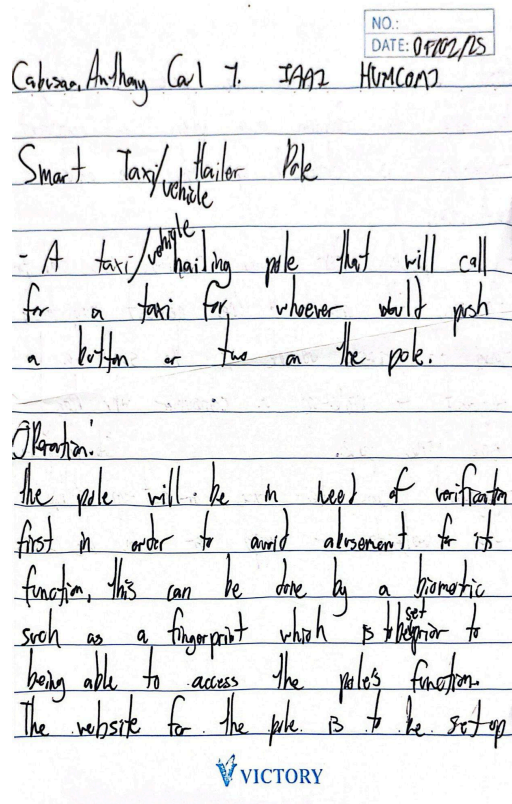 NO.:
DATE: 07/02/25
Cabusao, Anthony Carl T. IAA2 HUMCOM2
Smart Taxi/vehicle Hailer Pole
- A taxi/vehicle hailing pole that will call
for a taxi for whoever would push
a button or two on the pole.
Operation:
the pole will be in need of verification
first in order to avoid abusement for its
function, this can be done by a biometric
such as a fingerprint which is to be set prior to
being able to access the pole's function.
The website for the pole is to be set up
VICTORY